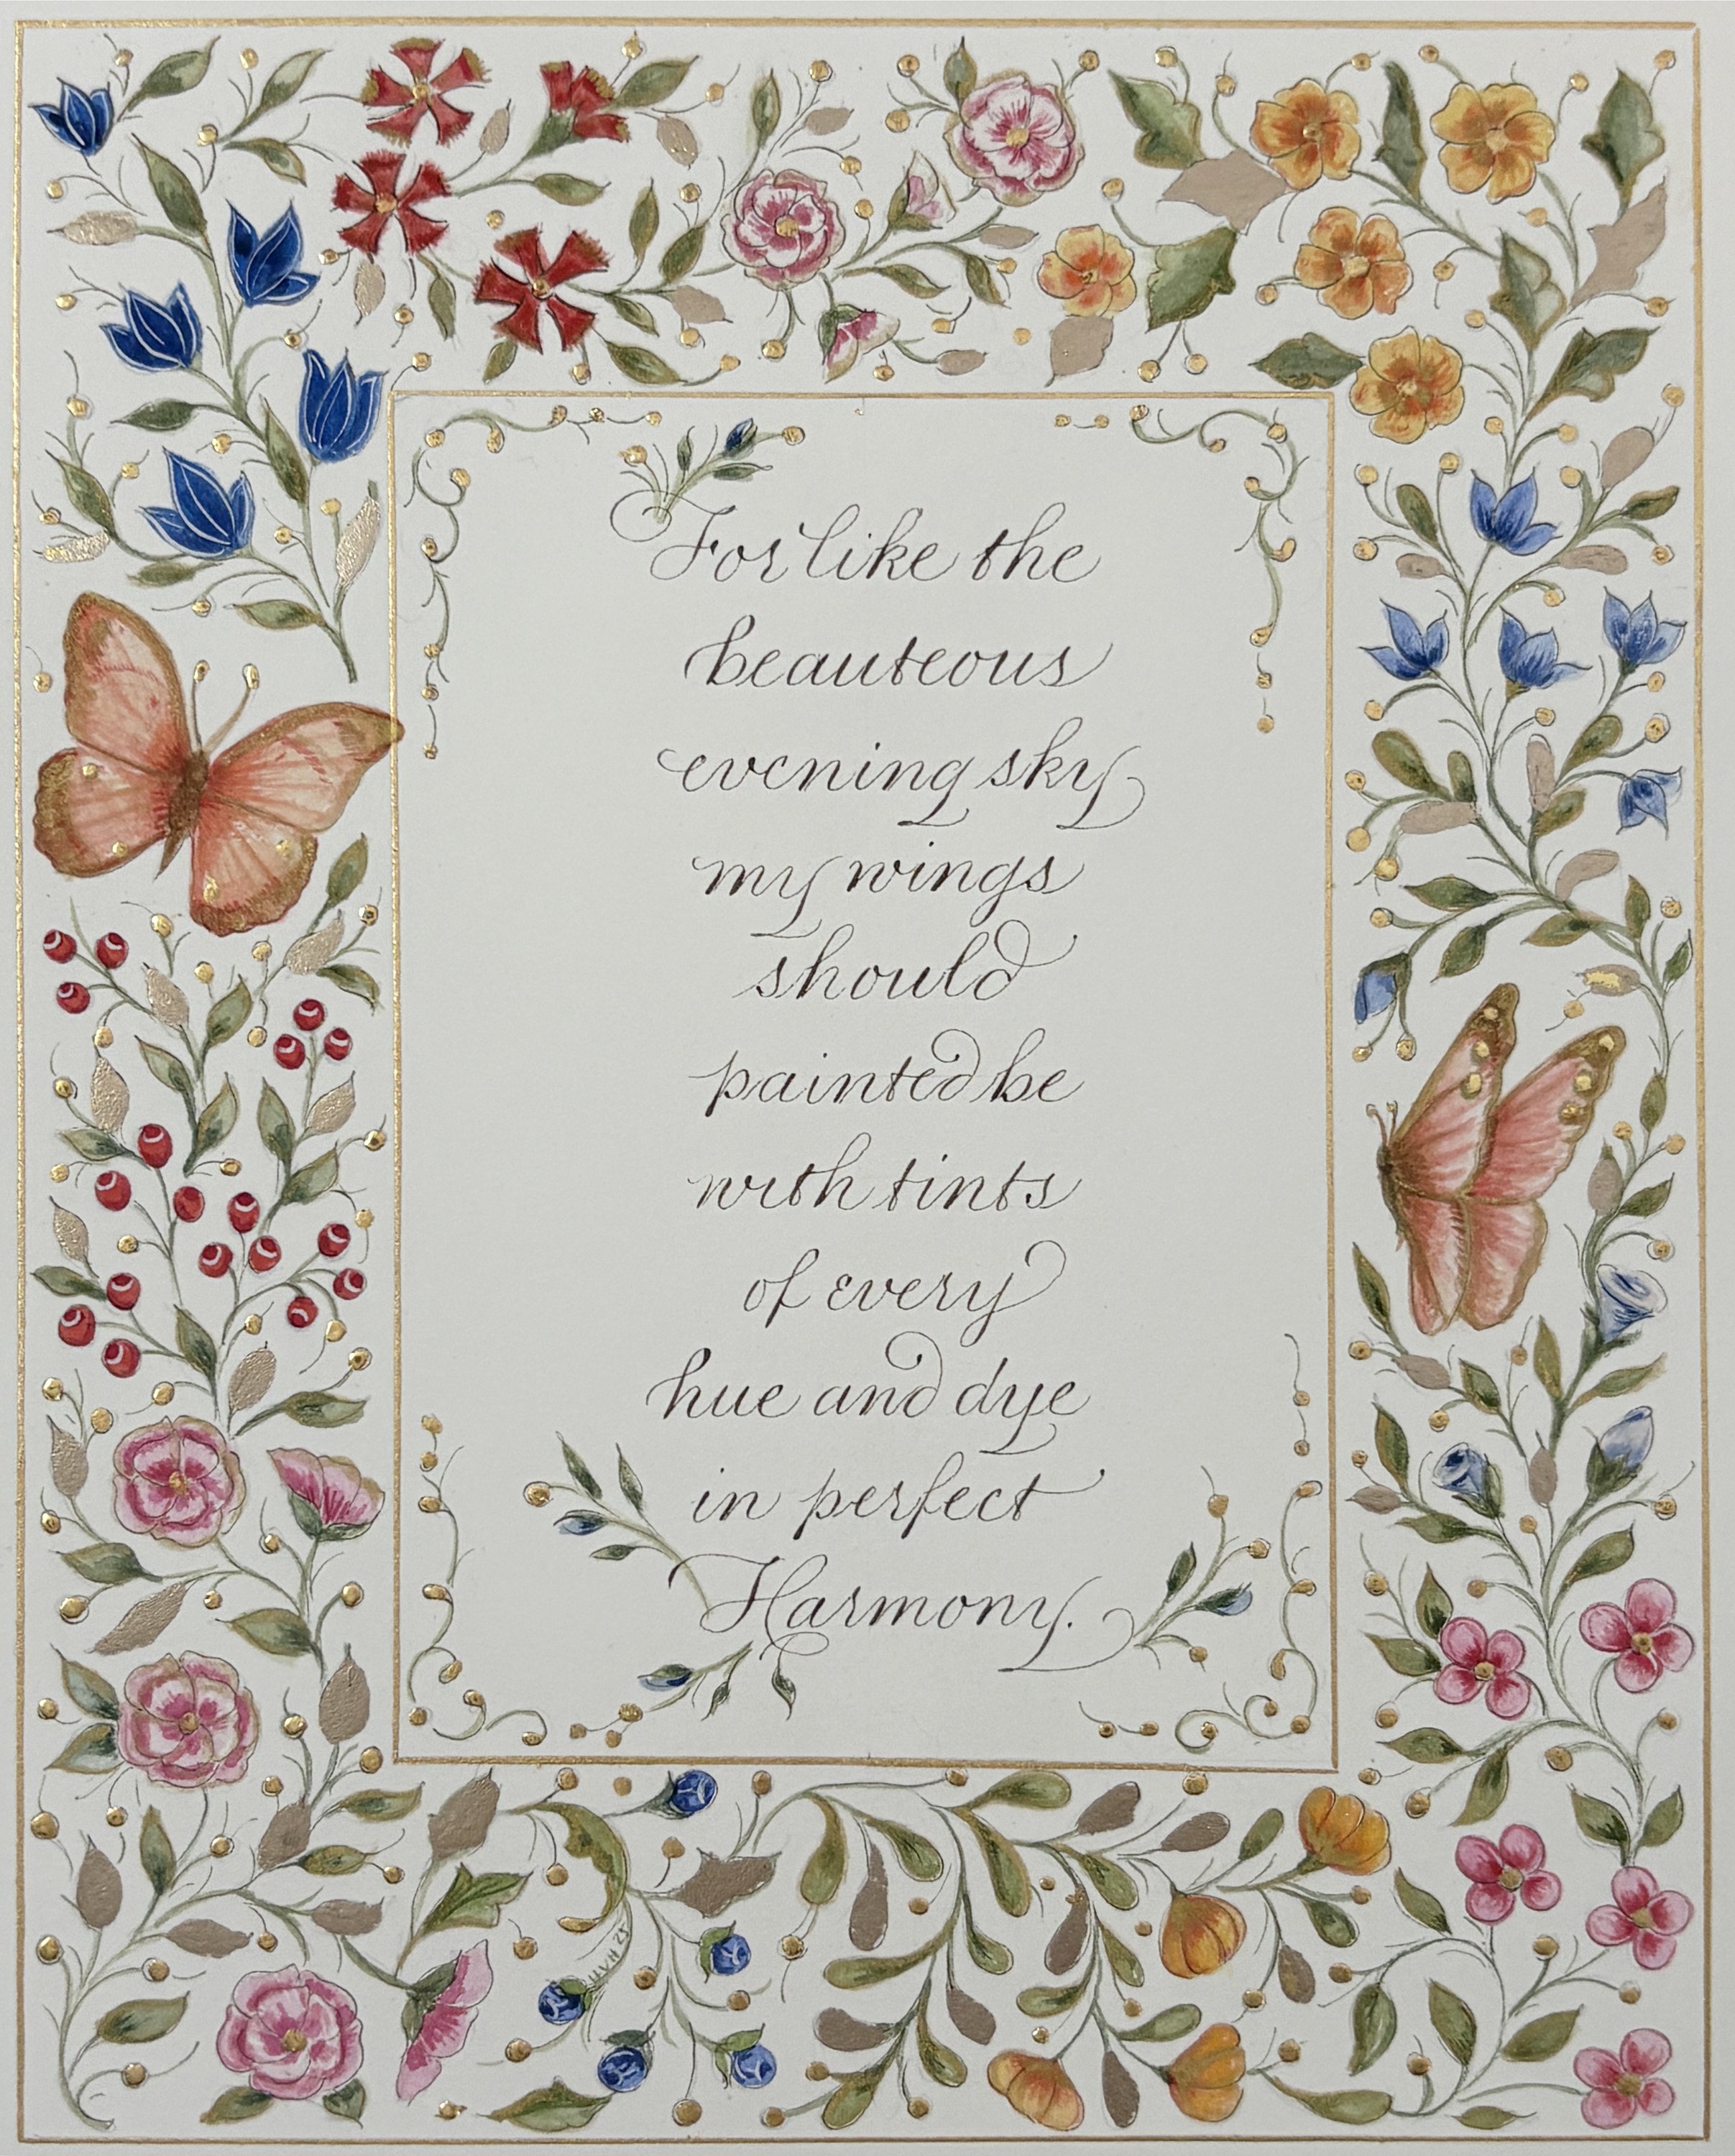 For like the
beauteous
evening sky
my wings
should
painted be
with tints
of every
hue and dye
in perfect
Harmony.